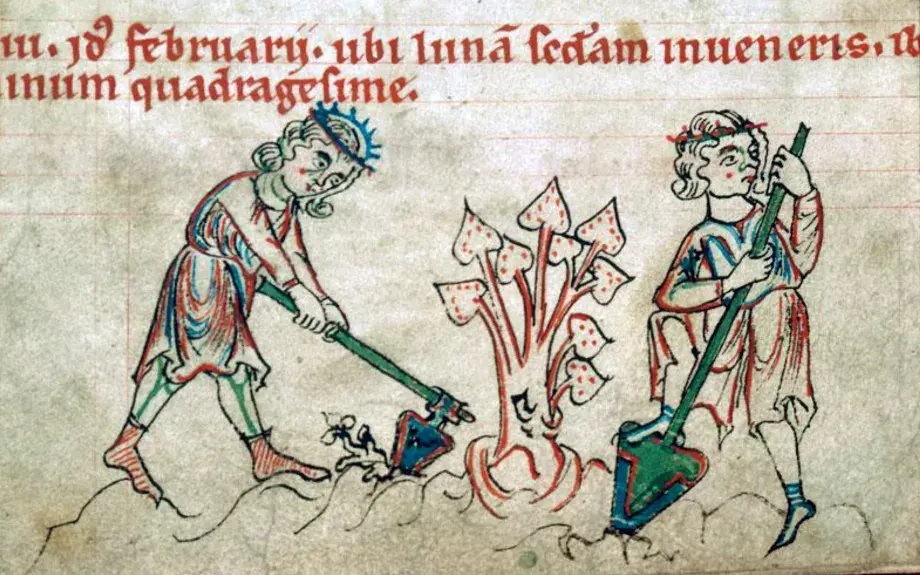 iii. id̛ februarij. ubi lunā scd̄am inueneris. ib
inum quadragesime.